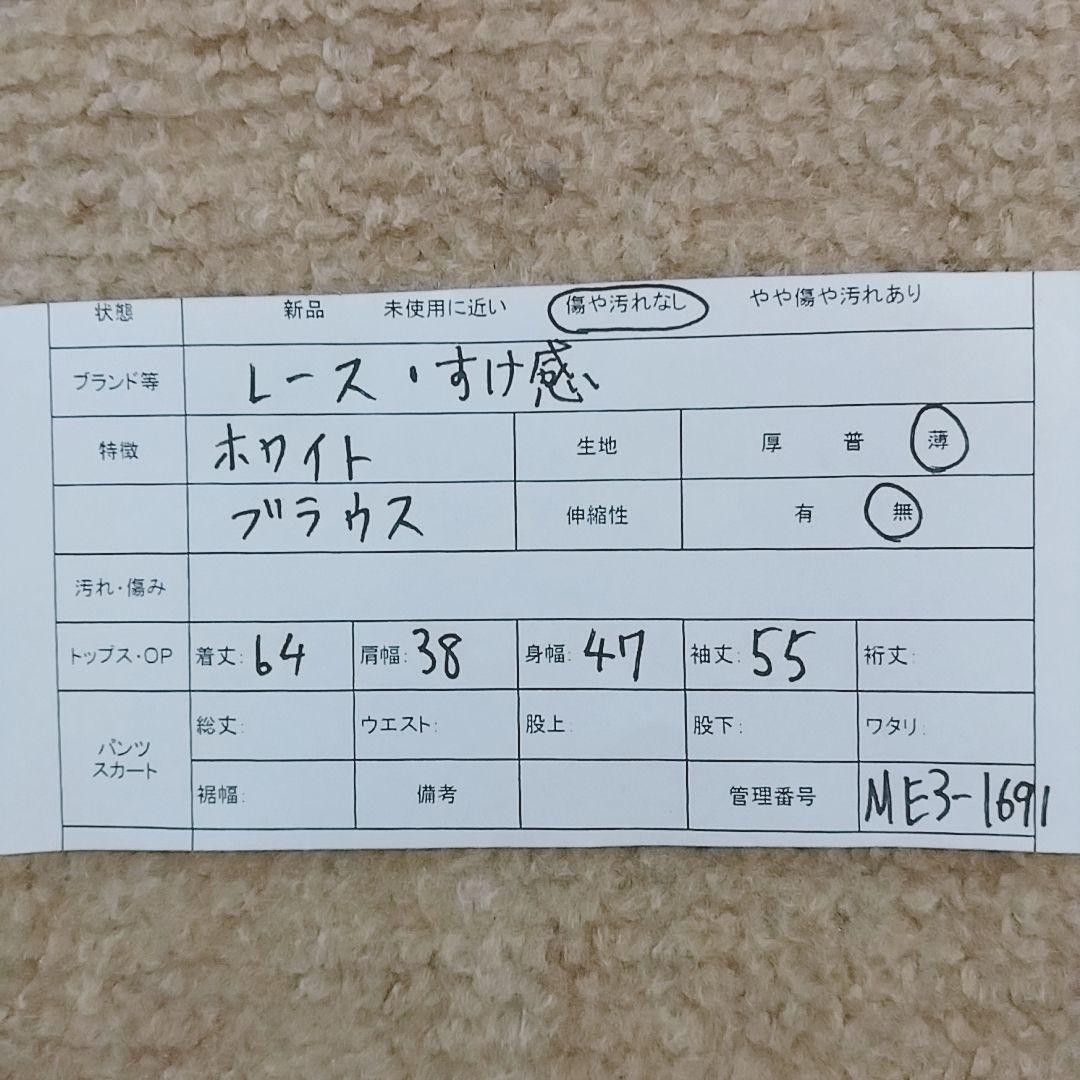 状態 新品 未使用に近い 傷や汚れなし やや傷や汚れあり
ブランド等 レース・すけ感
特徴 ホワイト 生地 厚 普 薄
ブラウス 伸縮性 有 無
汚れ・傷み
トップス・OP 着丈:64 肩幅:38 身幅:47 袖丈:55 裄丈:
パンツ スカート 総丈: ウエスト: 股上: 股下: ワタリ:
裾幅: 備考 管理番号 ME3-1691